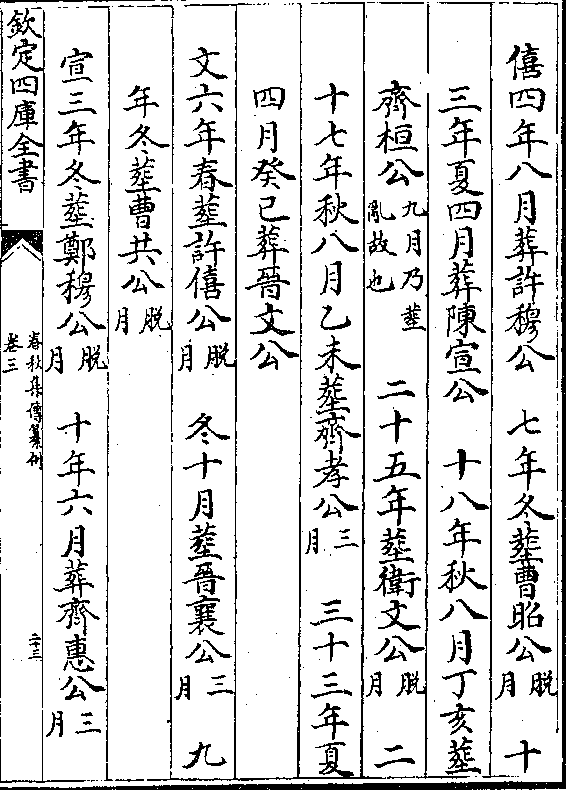 僖四年八月葬許穆公　七年冬葬曹昭公脱月　十
三年夏四月葬陳宣公　十八年秋八月丁亥葬
齊桓公九月乃葬亂故也　二十五年葬衛文公脱月　二
十七年秋八月乙未葬齊孝公三月　三十三年夏
四月癸巳葬晉文公
文六年春葬許僖公脱月　冬十月葬晉襄公三月　九
年冬葬曹共公脱月
宣三年冬葬鄭穆公脱月　十年六月葬齊惠公三月
欽定四庫全書
春秋集傳纂例
卷三
二十三